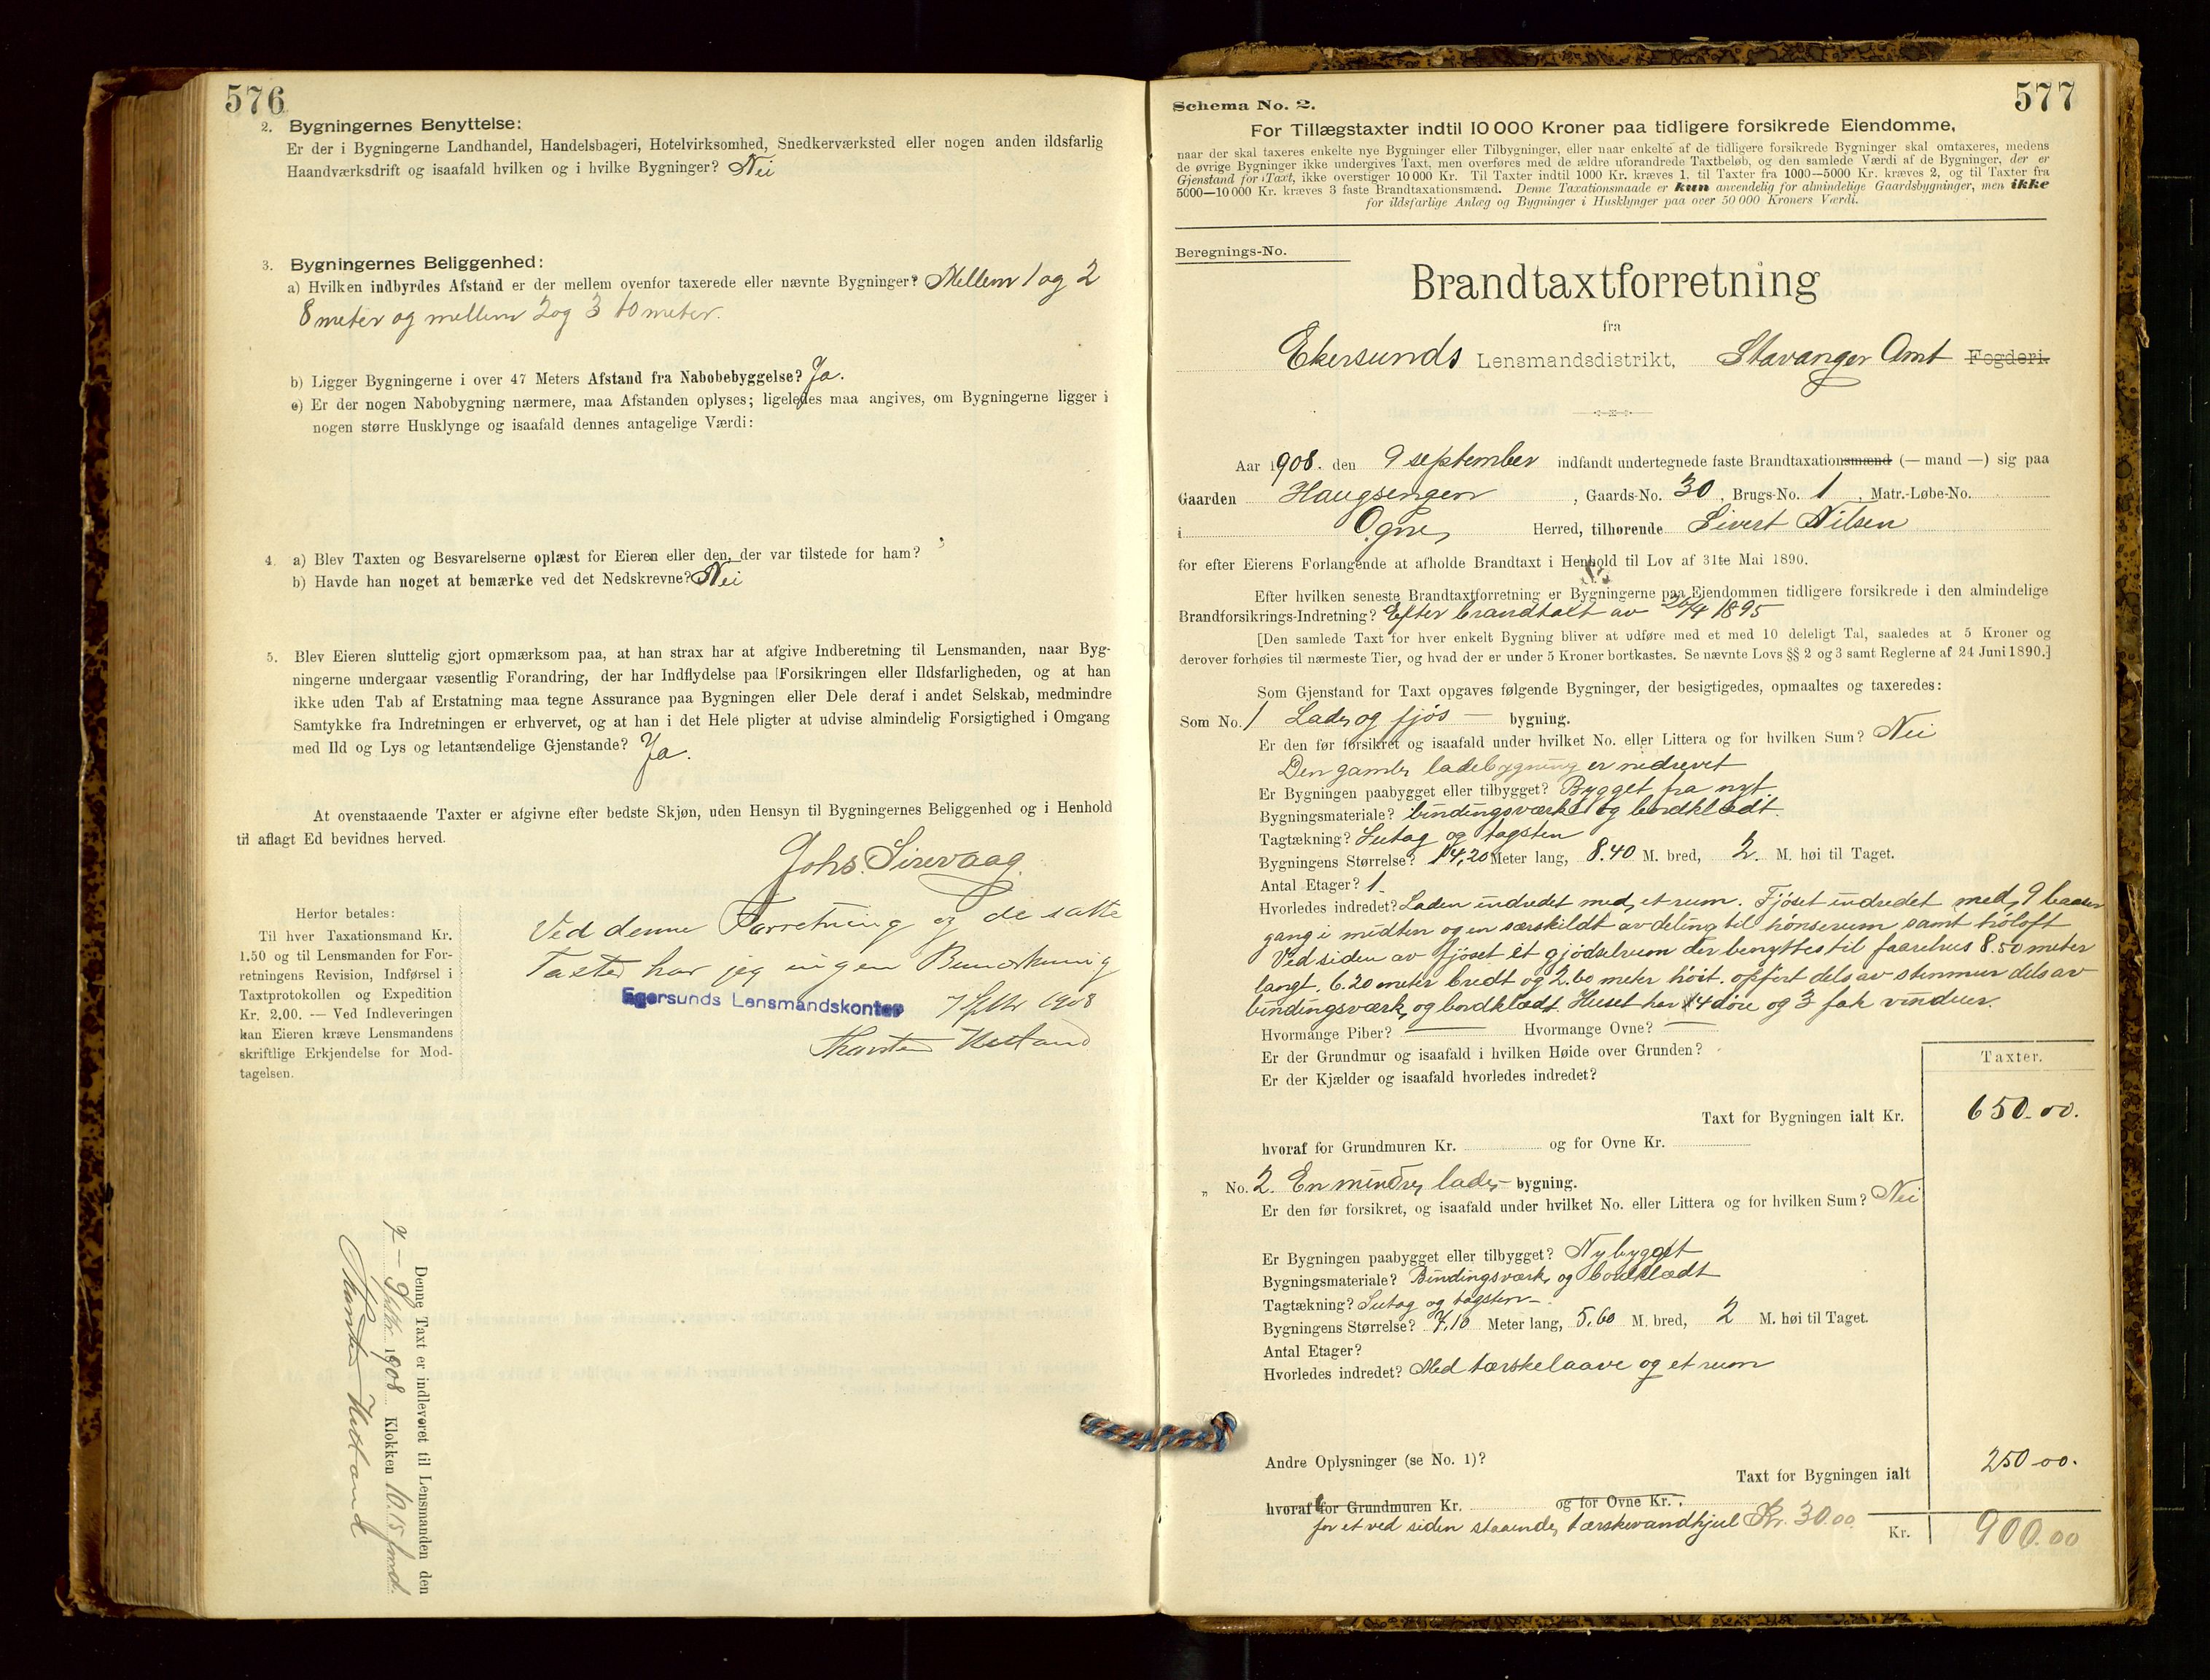 576
2. Bygningernes Benyttelse:
Er der i Bygningerne Landhandel, Handelsbageri, Hotelvirksomhed, Snedkerværksted eller nogen anden ildsfarlig
Haandværksdrift og isaafald hvilken og i hvilke Bygninger? Nei
3. Bygningernes Beliggenhed:
a) Hvilken indbyrdes Afstand er der mellem ovenfor taxerede eller nævnte Bygninger? Mellem 1 og 2
8 meter og mellem 2 og 3 10 meter.
b) Ligger Bygningerne i over 47 Meters Afstand fra Nabobebyggelse? Ja.
c) Er der nogen Nabobygning nærmere, maa Afstanden oplyses; ligeledes maa angives, om Bygningerne ligger i
nogen større Husklynge og isaafald dennes antagelige Værdi:
4. a) Blev Taxten og Besvarelserne oplæst for Eieren eller den, der var tilstede for ham?
b) Havde han noget at bemærke ved det Nedskrevne? Nei
5. Blev Eieren sluttelig gjort opmærksom paa, at han strax har at afgive Indberetning til Lensmanden, naar Byg-
ningerne undergaar væsentlig Forandring, der har Indflydelse paa Forsikringen eller Ildsfarligheden, og at han
ikke uden Tab af Erstatning maa tegne Assurance paa Bygningen eller Dele deraf i andet Selskab, medmindre
Samtykke fra Indretningen er erhvervet, og at han i det Hele pligter at udvise almindelig Forsigtighed i Omgang
med Ild og Lys og letantændelige Gjenstande? Ja.
At ovenstaaende Taxter er afgivne efter bedste Skjøn, uden Hensyn til Bygningernes Beliggenhed og i Henhold
til aflagt Ed bevidnes herved.
Johs. Sirevaag.
Herfor betales:
Til hver Taxationsmand Kr.
1.50 og til Lensmanden for For-
retningens Revision, Indførsel i
Taxtprotokollen og Expedition
Kr. 2,00. — Ved Indleveringen
kan Eieren kræve Lensmandens
skriftlige Erkjendelse for Mod-
tagelsen.
Ved denne Forretning og de satte
Taxter har jeg ingen
Egersunds Lensmandskontor 7 Septbr 1908
Denne Taxt er indleveret til Lensmanden den
7 – Septbr. 1908 Klokken 10.15 fmd.
577
Schema No. 2.
For Tillægstaxter indtil 10 000 Kroner paa tidligere forsikrede Eiendomme,
naar der skal taxeres enkelte nye Bygninger eller Tilbygninger, eller naar enkelte af de tidligere forsikrede Bygninger skal omtaxeres, medens
de øvrige Bygninger ikke undergives Taxt, men overføres med de ældre uforandrede Taxtbeløb, og den samlede Værdi af de Bygninger, der er
Gjenstand for Taxt, ikke overstiger 10 000 Kr. Til Taxter indtil 1000 Kr. kræves 1, til Taxter fra 1000—5000 Kr. kræves 2, og til Taxter fra
5000—10 000 Kr. kræves 3 faste Brandtaxationsmænd. Denne Taxationsmaade er kun anvendelig for almindelige Gaardsbygninger, men ikke
for ildsfarlige Anlæg og Bygninger i Husklynger paa over 50 000 Kroners Værdi.
Beregnings-No.
Brandtaxtforretning
fra
Ekersunds Lensmandsdistrikt, Stavanger Amt Fogderi.
Aar 1908. den 9 september indfandt undertegnede faste Brandtaxationsmænd (— mand —) sig paa
Gaarden Haugsengen, Gaards-No. 30, Brugs-No. 1, Matr.-Løbe-No.
i Ogne Herred, tilhørende Sivert Nilsen
for efter Eierens Forlangende at afholde Brandtaxt i Henhold til Lov af 31te Mai 1890.
Efter hvilken seneste Brandtaxtforretning er Bygningerne paa Eiendommen tidligere forsikrede i den almindelige
Brandforsikrings-Indretning? Efter brandtakst av 26/4 1895
[Den samlede Taxt for hver enkelt Bygning bliver at udføre med et med 10 deleligt Tal, saaledes at 5 Kroner og
derover forhøies til nærmeste Tier, og hvad der er under 5 Kroner bortkastes. Se nævnte Lovs §§ 2 og 3 samt Reglerne af 24 Juni 1890.]
Som Gjenstand for Taxt opgaves følgende Bygninger, der besigtigedes, opmaaltes og taxeredes:
Som No. 1 Lade og fjøs — bygning.
Er den før forsikret og isaafald under hvilket No. eller Littera og for hvilken Sum? Nei
Den gamle ladebygning er nedrevet
Er Bygningen paabygget eller tilbygget? Bygget fra nyt.
Bygningsmateriale? bindingsværk og bordklædt.
Tagtækning? Sutag og tagsten
Bygningens Størrelse? 14,20 Meter lang, 8.40 M. bred, 2. M. høi til Taget.
Antal Etager? 1.
Hvorledes indredet? Laden indredet med et rum. Fjøset indredet med 9 baaser
gang i midten og en særskildt avdeling til hønserum samt høloft
Ved siden av fjøset et gjødselrum der benyttes til faarehus 8.50 meter
langt, 6.20 meter bredt og 2.60 meter høit. opført dels av stenmur dels av
bindingsværk og bordklædt. Huset har 4 døre og 3 fak vinduer.
Hvormange Piber? — Hvormange Ovne? —
Er der Grundmur og isaafald i hvilken Høide over Grunden?
Er der Kjælder og isaafald hvorledes indredet?
Taxter.
Taxt for Bygningen ialt Kr. 650.00.
hvoraf for Grundmuren Kr. og for Ovne Kr.
„ No. 2. En mindre lade- bygning.
Er den før forsikret, og isaafald under hvilket No. eller Littera og for hvilken Sum? Nei
Er Bygningen paabygget eller tilbygget? Nybygget
Bygningsmateriale? Bindingsværk og bordklædt
Tagtækning? Sutag og tagsten –
Bygningens Størrelse? 7,10 Meter lang, 5,60 M. bred, 2 M. høi til Taget.
Antal Etager?
Hvorledes indredet? Med tærskelaave og et rum
Andre Oplysninger (se No. 1)?
Taxt for Bygningen ialt 250.00.
hvoraf for Grundmuren Kr. og for Ovne Kr.
for et ved siden staaende tærskevandhjul Kr. 30.00
Kr. 900.00